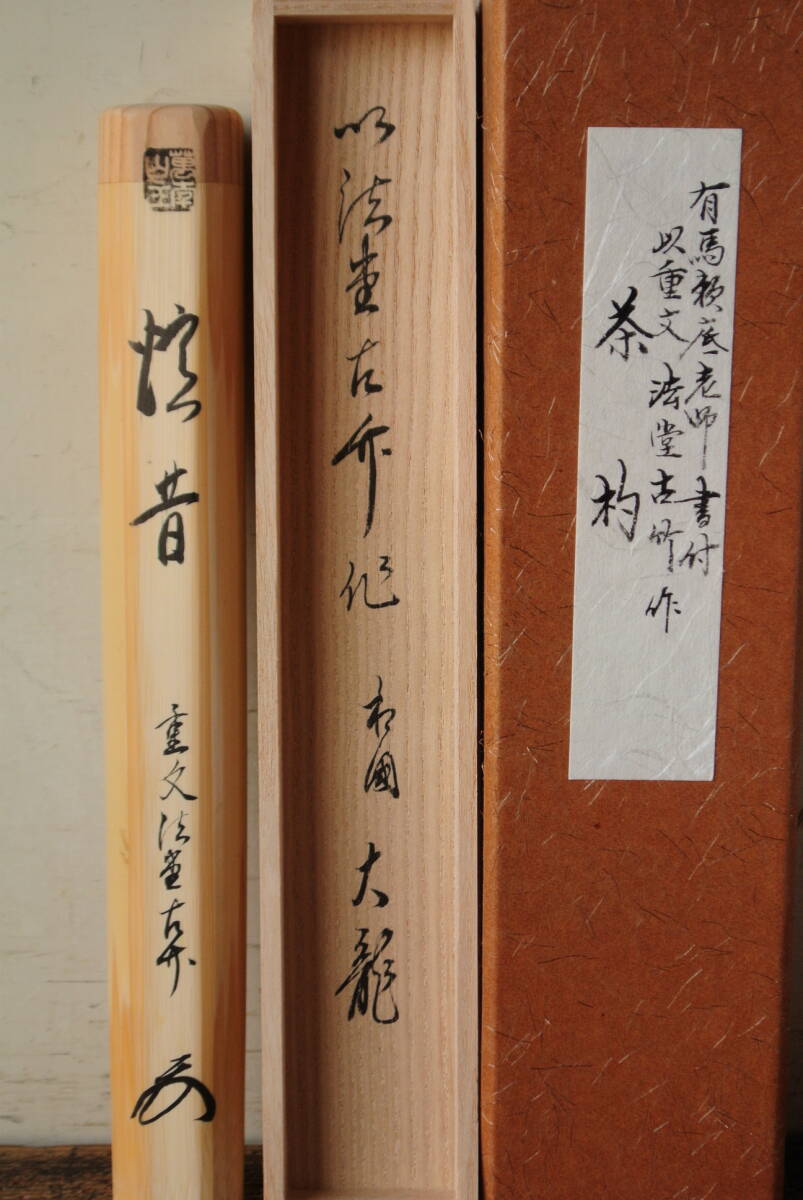 有馬頼底老師 書付
以重文 法堂古竹作
茶 杓
以法堂古竹作 相國 大龍
憶昔 重文法堂古竹
萬年山主